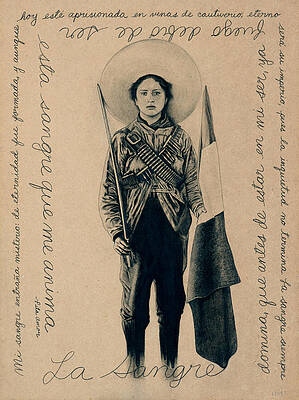 Mi sangre entraña misterio: de eternidad fue formada y aunque
hoy está aprisionada en venas de cautiverio, eterno
será su imperio, que la inquietud no termina. La sangre siempre
domina, que antes de estar en mi ser, ya
fuego debió de ser
esta sangre que me anima
-Pita Amor
La Sangre